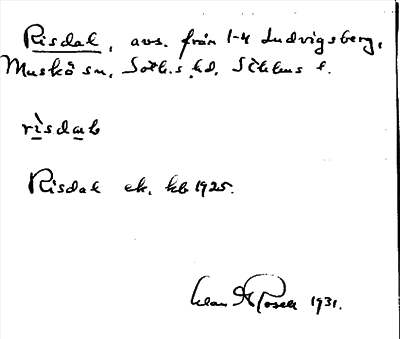 Risdal, avs. från 1-4 Ludvigsberg,
Muskö sn, Soth.s hd, Sthlms l.
rìsdaɩ
Risdal ek. kb 1925.
1931.